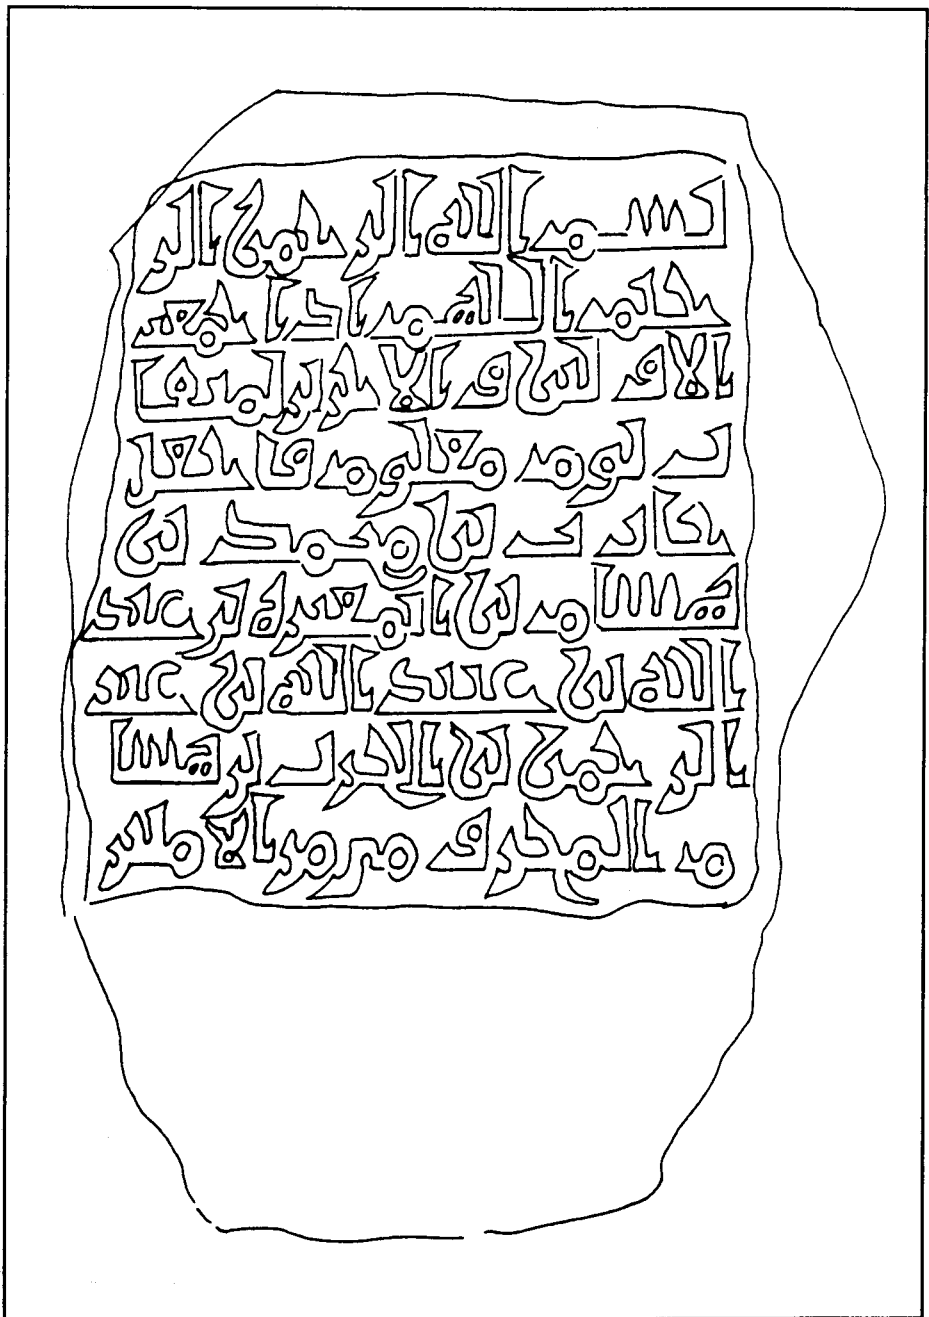 بسم الله الرحمن الر
حيم اللهم اذا جمعت
الاولين والاخرين لميقا
ت يوم معلوم فاجعل
بن محمد بن
هشام بن المغيرة بن عبد
الله بن عبيد الله بن عبد
الرحمن بن الحارث بن هشا
م المخزومي من الامنين